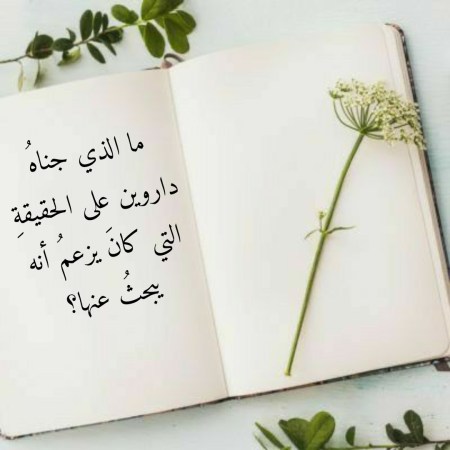 ما الذي جناهُ
داروين على الحقيقةِ
التي كانَ يزعمُ أنه
يبحثُ عنها؟